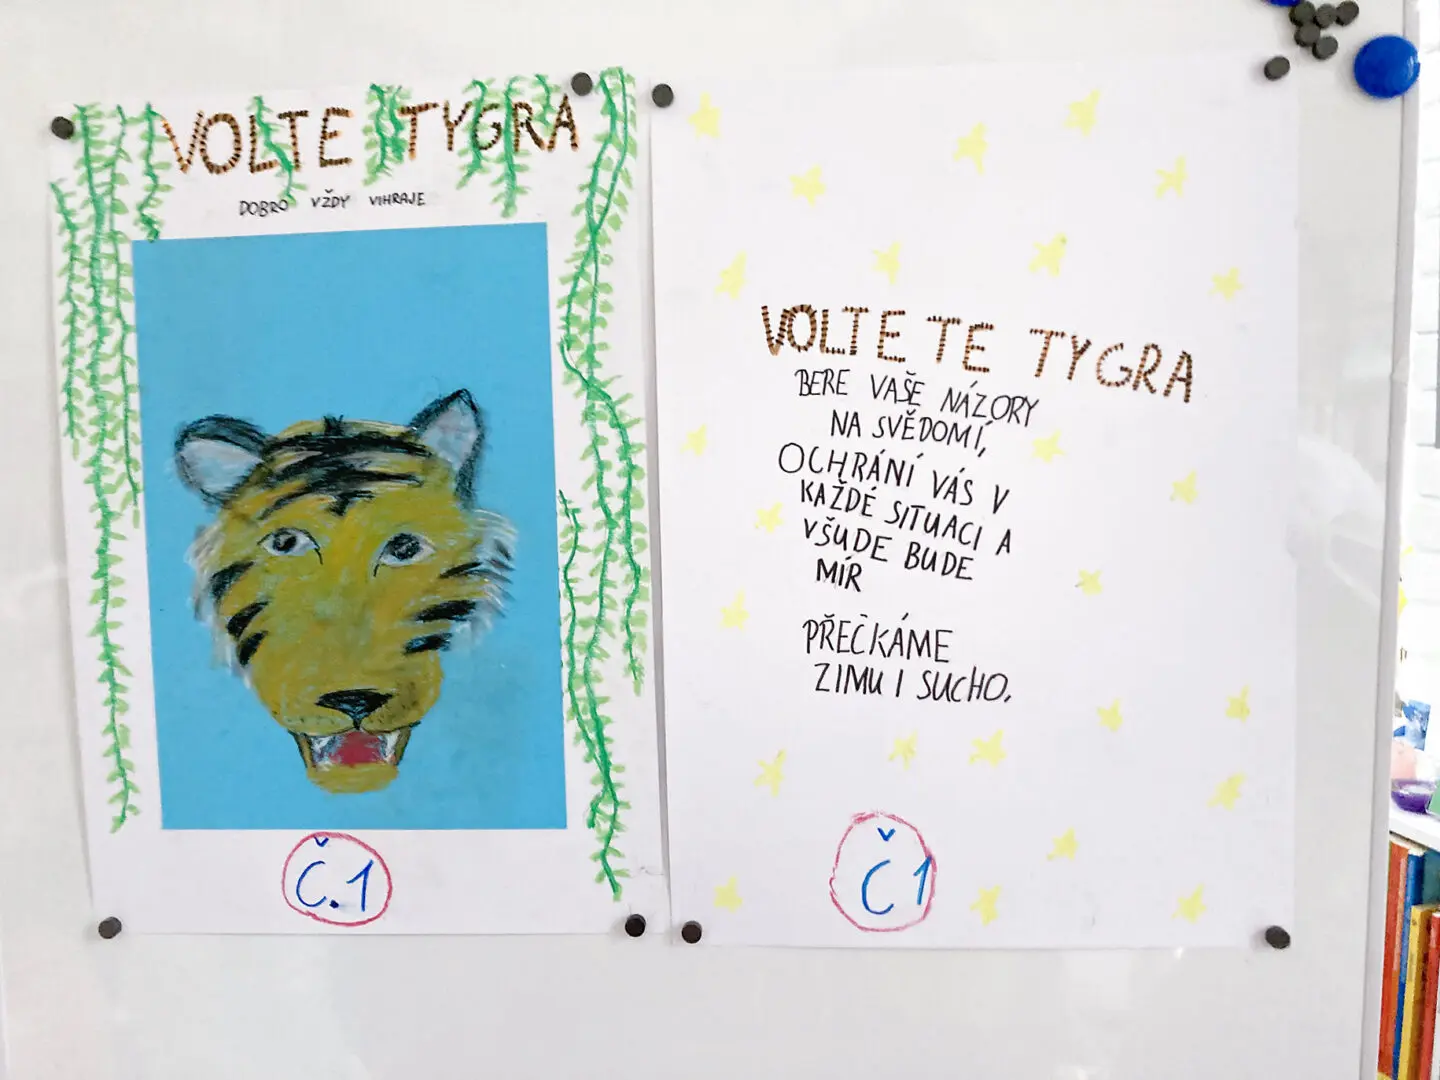 VOLTE TYGRA
DOBRO VŽDY VIHRAJE
Č.1
VOLTE TE TYGRA
BERE VAŠE NÁZORY
NA SVĚDOMÍ,
OCHRÁNÍ VÁS V
KAŽDÉ SITUACI A
VŠUDE BUDE
MÍR
PŘEČKÁME
ZIMU I SUCHO.
Č1